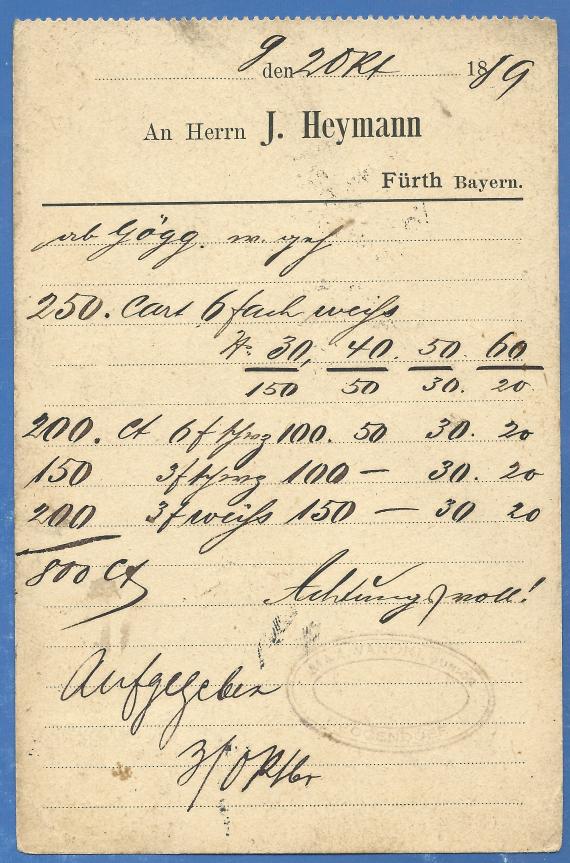 9 den 20 Okt 1889
An Herrn J. Heymann
Fürth Bayern.
ab Gögg.
250. Cart 6 fach weiß
№ 30, 40. 50. 60
150 50 30. 20
200. Ct 6 f schwz 100. 50 30. 20
150 3f schwz 100 — 30. 20
200 3f weiß 150 — 30 20
800 Ct
Achtungsvoll!
Aufgegeben
3/Oktbr